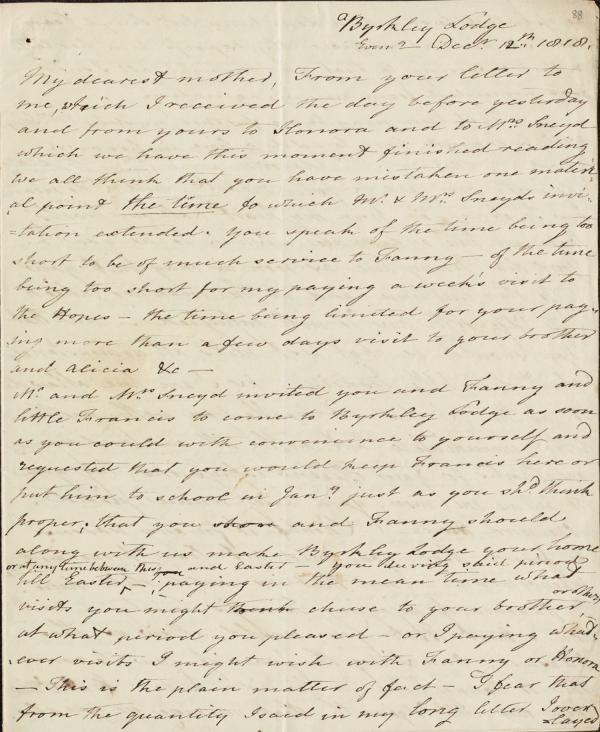 88
Byrkley Lodge
Decr 12th 1818.
My dearest mother, From your letter to
me, which I received the day before yesterday
and from yours to Honora and to Mrs Sneyd
which we have this moment finished reading
we all think that you have mistaken one materi-
al point the time to which Mr. & Mrs Sneyds invi-
=tation extended. You speak of the time being too
short to be of much service to Fanny – of the time
being too short for my paying a week's visit to
the Hopes – the time being limited for your pay-
ing more than a few days visit to your brother
and Alicia &c –
Mr and Mrs Sneyd invited you and Fanny and
little Francis to come to Byrkley Lodge as soon
as you could with convenience to yourself and
requested that you would keep Francis here or
put him to school in Jany just as you shd think
proper; that you and Fanny should
along with us make Byrkley Lodge your home
or at any time between this and Easter – you during said period
till Easter – paying in the mean time what
visits you might think chuse to your brother or others
at what period you pleased – or I paying what-
ever visits I might wish with Fanny or Honora
– This is the plain matter of fact – I fear that
from the quantity I said in my long letter I over
=layed